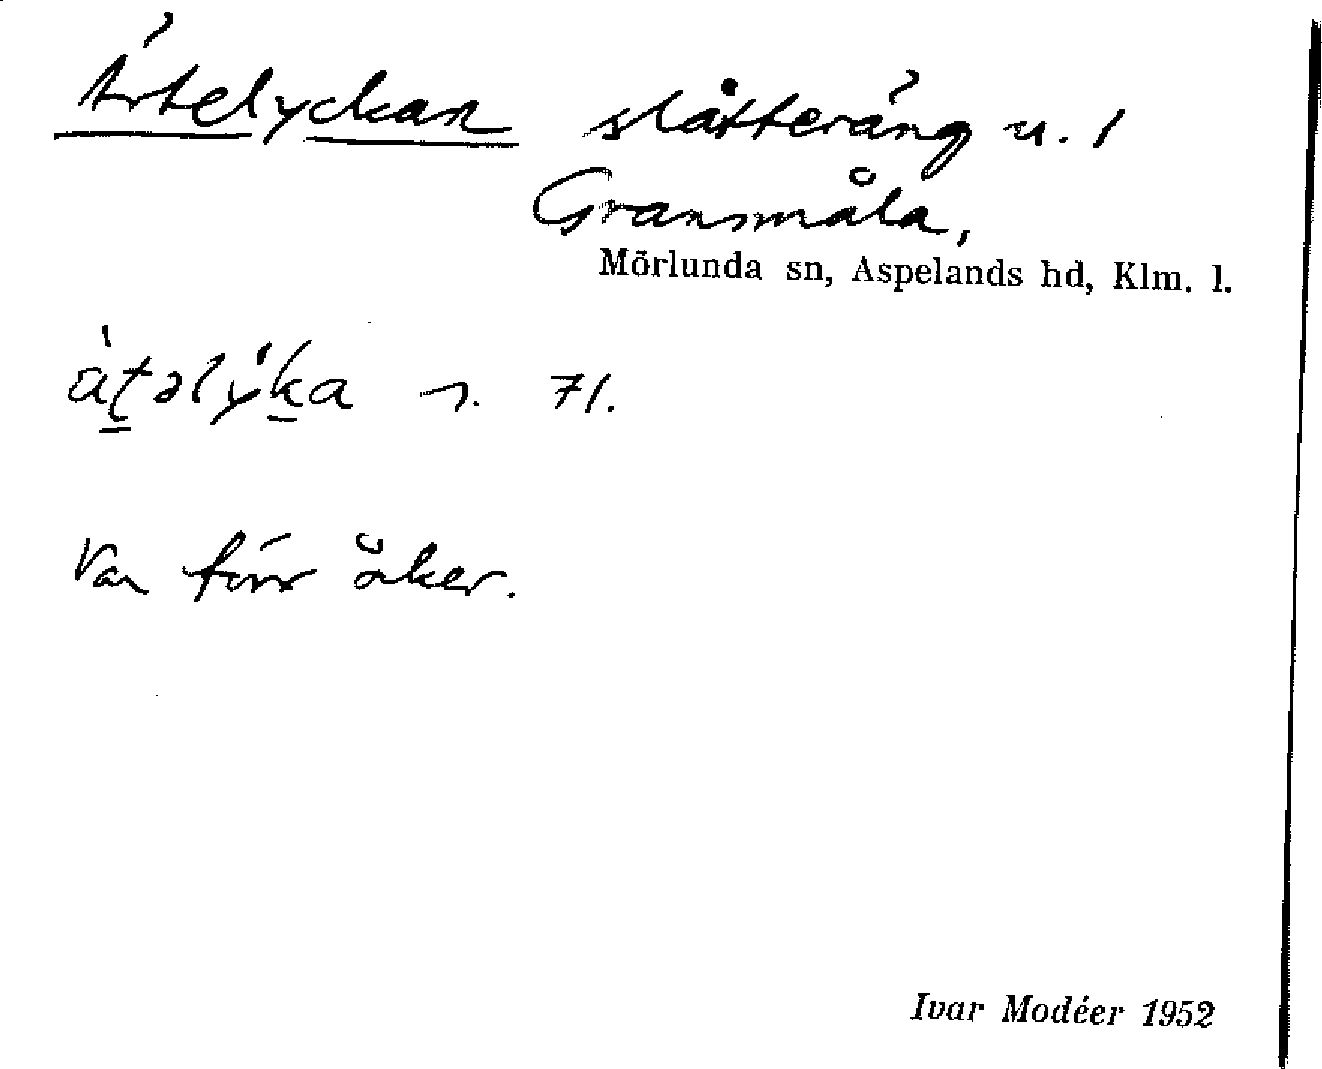 Ärtelyckan slåtteräng u. 1
Gransmåla,
Mörlunda sn, Aspelands hd, Klm. l.
n. 71.
Var förr åker.
Ivar Modéer 1952